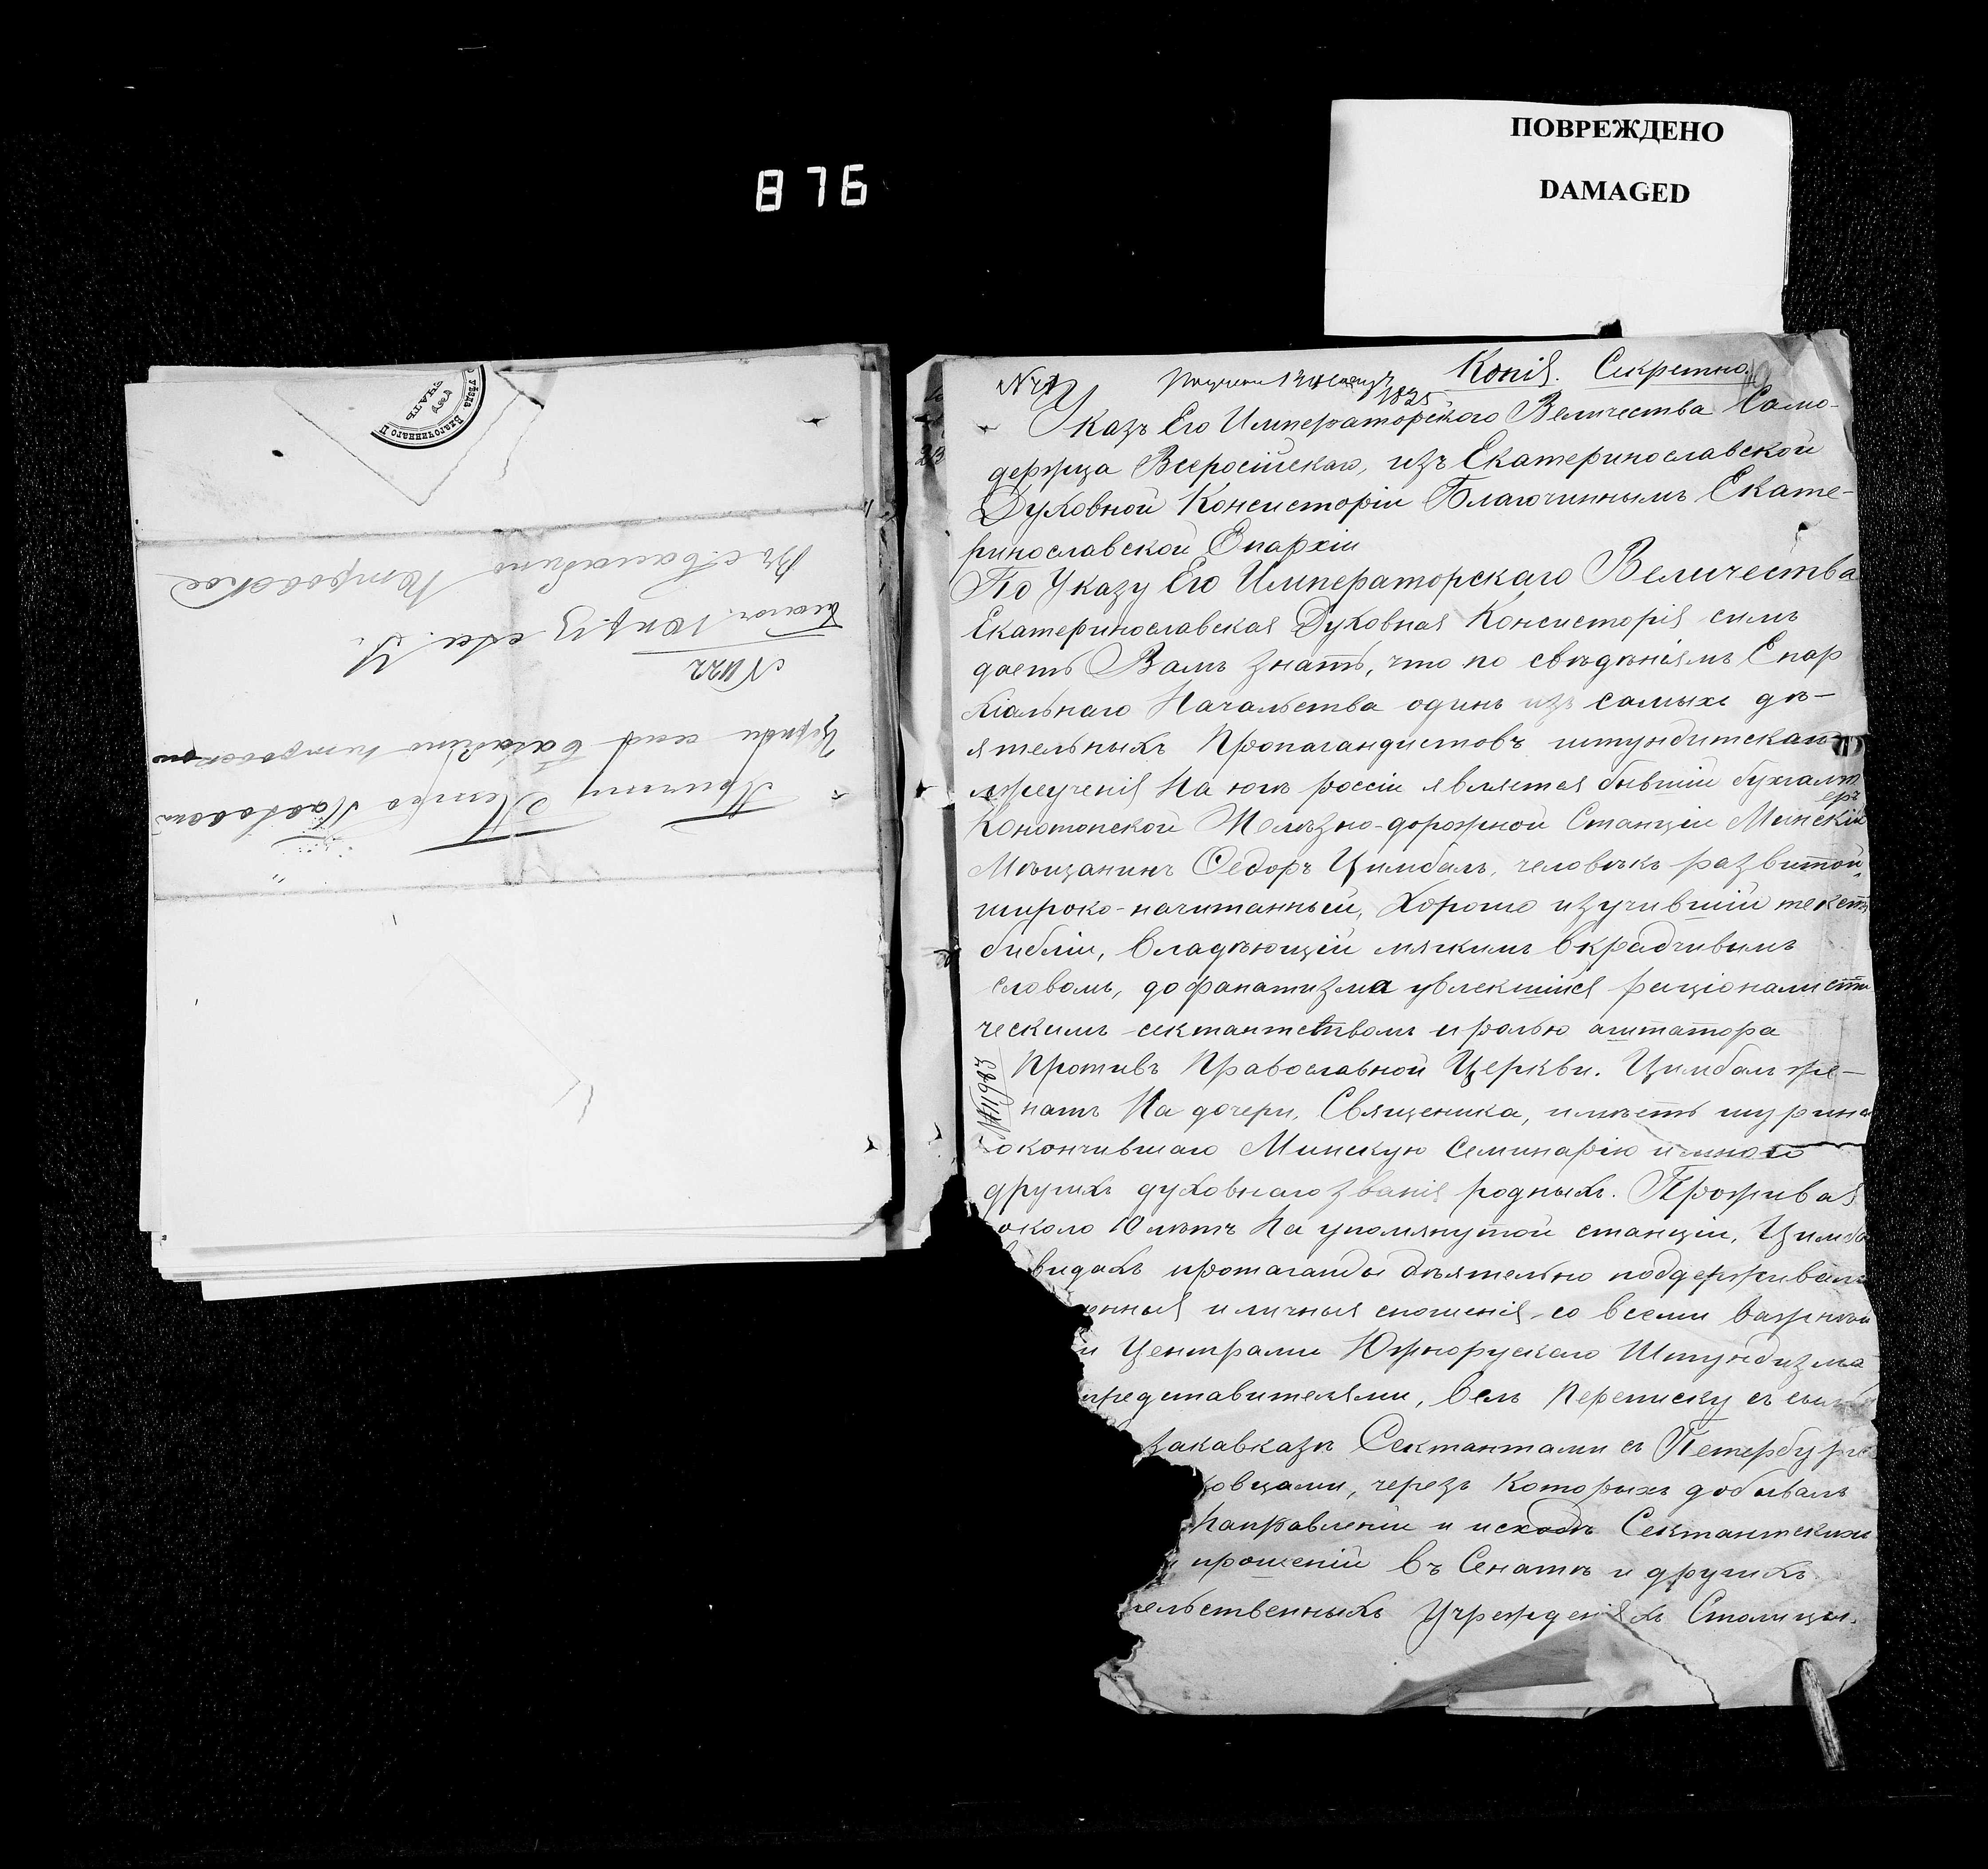 876
ПОВРЕЖДЕНО
DAMAGED
Причту Петро Павловской
Церкви села Балабино Петровское
№ 1122
Въ с. Балабино Петровское
Копія. Секретно.
Указъ Его Императорскаго Величества Само-
держца Всеросійскаго, изъ Екатеринославской
Духовной Консисторіи Благочиннымъ Екате-
ринославской Епархіи
По Указу Его Императорскаго Величества
Екатеринославская Духовная Консисторія симъ
даетъ Вамъ знать, что по свѣдѣніямъ Епар
хіальнаго Начальства одинъ изъ самыхъ дѣ-
ятельныхъ пропагандистовъ штундитскаго
лжеученія на югѣ россіи является бывшій бухгалт
еръ
Конотопской Желѣзно-дорожной Станціи Минскій
Мѣщанинъ Федоръ Цимбалъ, человѣкъ развитой,
широко-начитанный, хорошо изучившій текстъ
библіи, владѣющій мягкимъ вкрадчивымъ
словомъ, до фанатизма увлекшійся раціоналисти
ческимъ сектантствомъ и ролью агитатора
противъ Православной Церкви. Цимбалъ же-
натъ на дочери Священика, имѣетъ шурина
окончившаго Минскую Семинарію и много
другихъ духовнаго званія родныхъ. Проживая
около 10 лѣтъ на упомянутой станціи, Цимба
видахъ пропаганды дѣятельно поддерживалъ
нныя и личныя сношенія со всеми важнѣй
и Центрами Южнорускаго Штундизма
представителями, велъ переписку съ
закавказѣ Сектантами съ Петербург
овцами, черезъ которыхъ добывалъ
направленіи и исходѣ Сектантскихъ
прошеній въ Сенатѣ и другихъ
ельственныхъ Учрежденіяхъ Столицы.